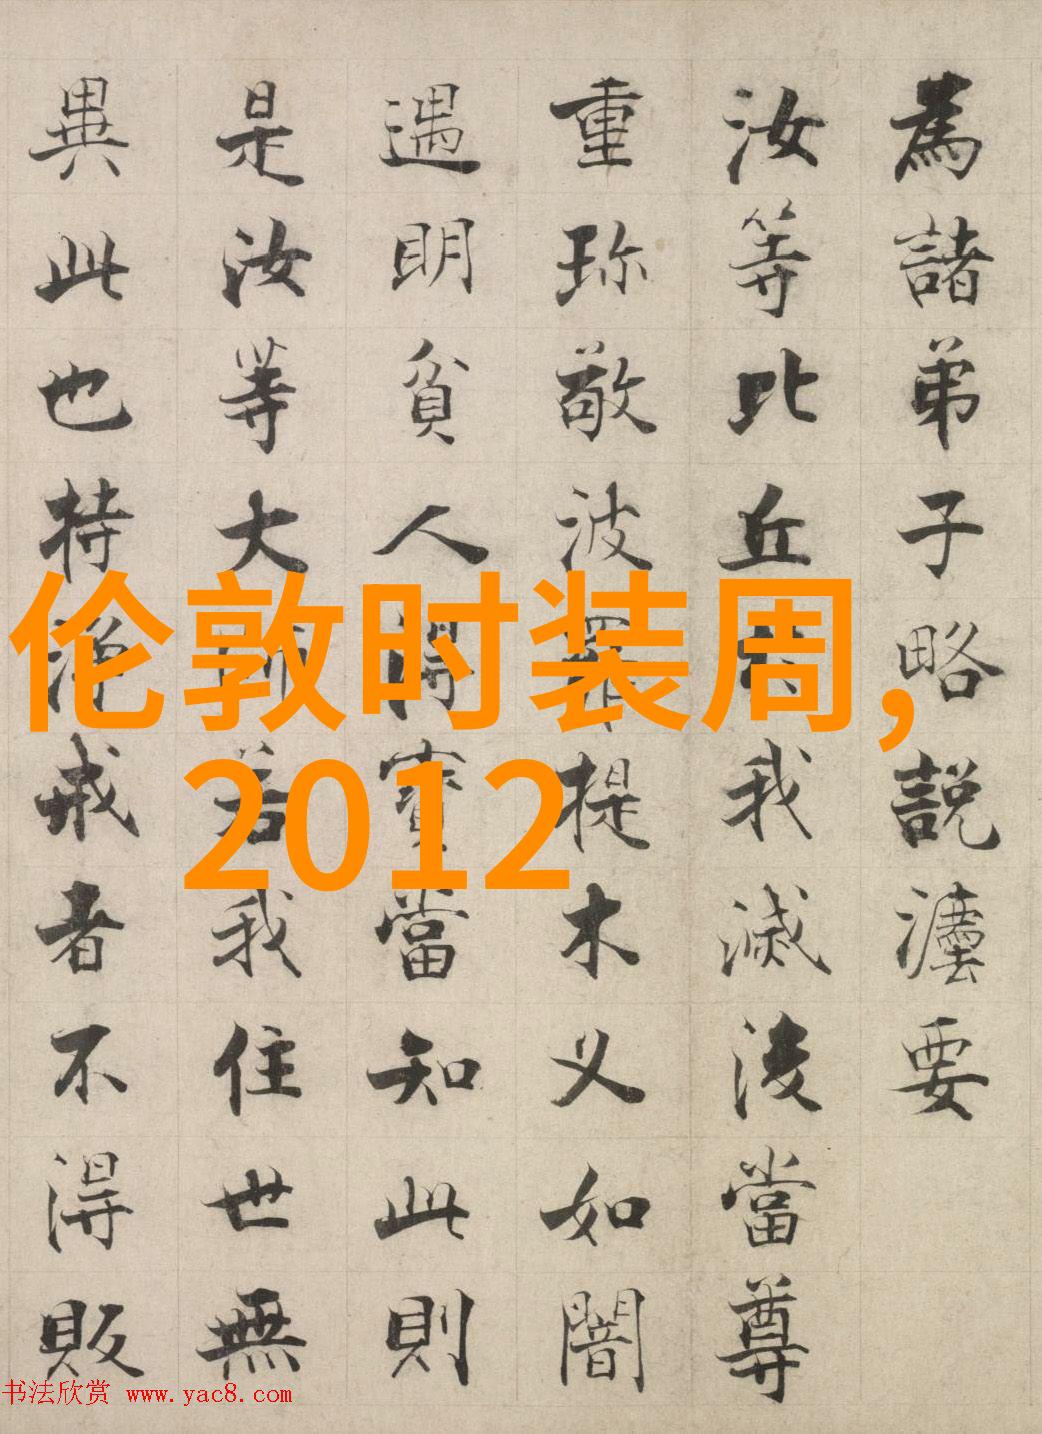 為諸弟子略説灋要
汝等比丘於我滅後當尊
重珎敬波羅提木义如闇
遇明貧人得寶當知此則
是汝等大師若我住世無
異此也持淨戒者不得販
伦敦时装周,
2012
书法欣赏 www.yac8.com